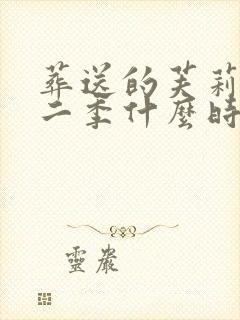 葬送的芙莉
二季什麼時
靈巖